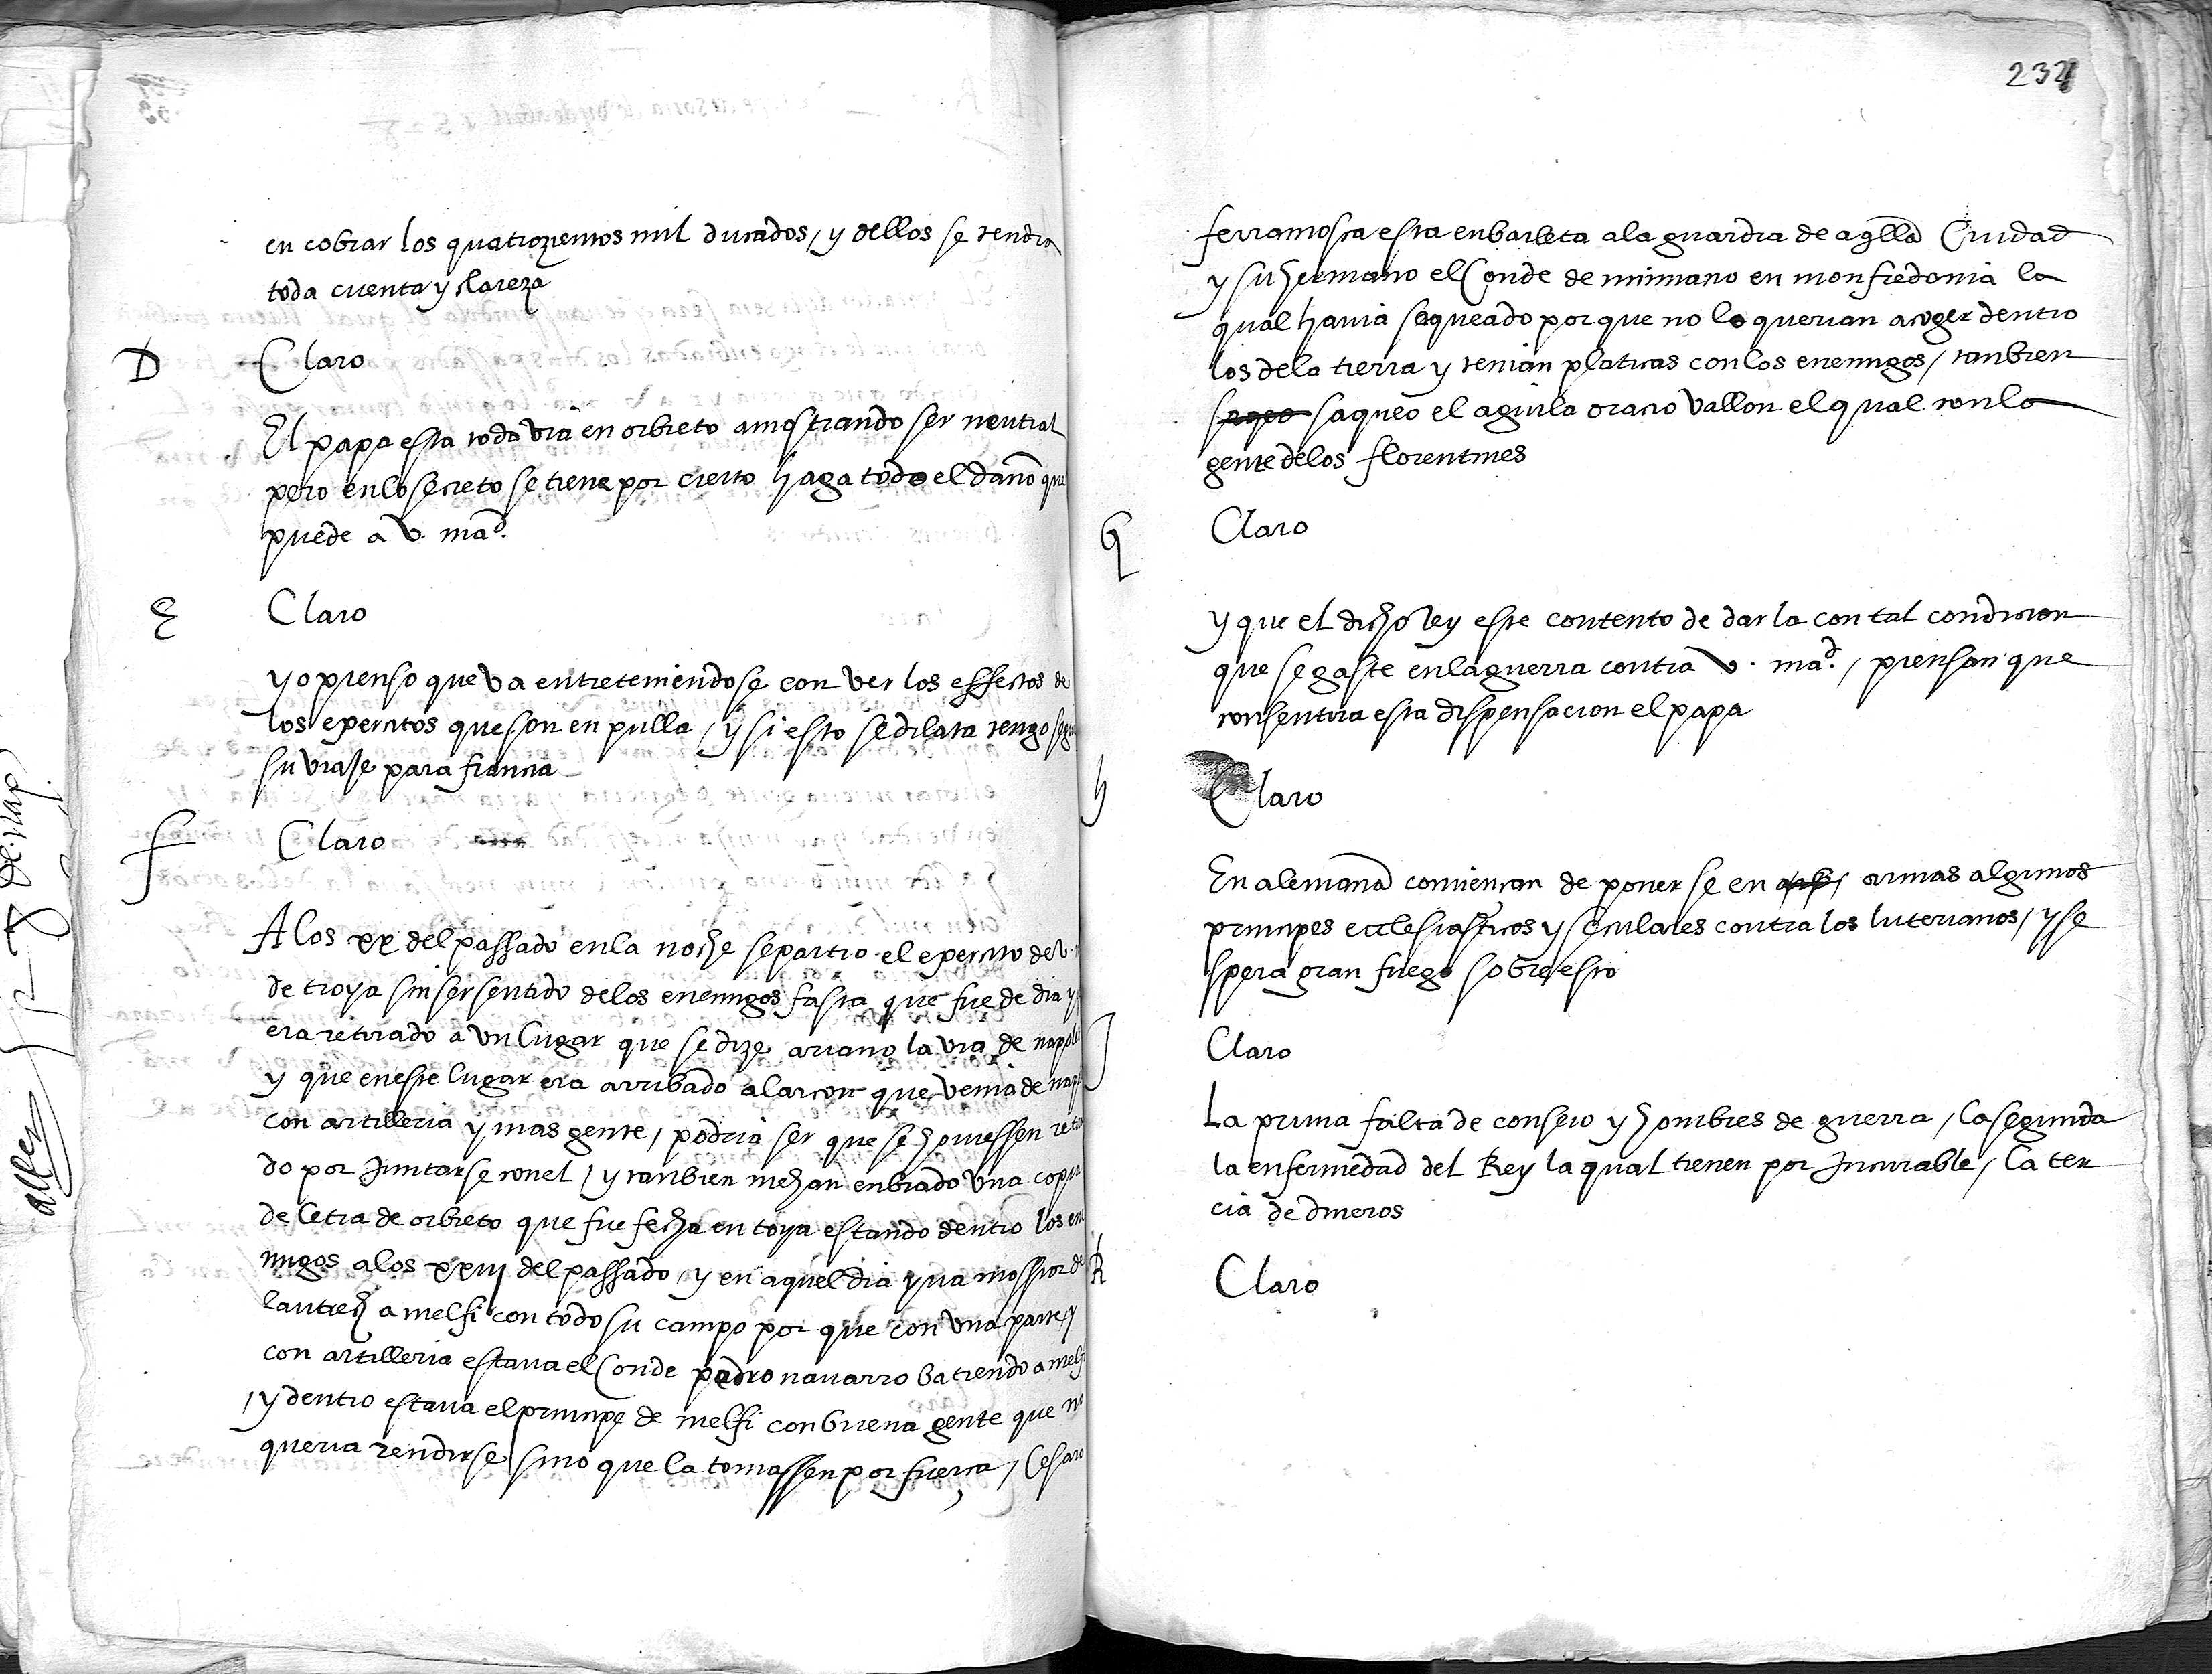 en cobrar los quatrozientos mil ducados / y dellos se tendra
toda cuenta y clareza
D Claro
El papa esta toda via en orbieto amostrando ser neutral
pero en lo secreto se tiene por cierto haga todo el daño que
puede a v. mad.
E Claro
yo pienso que va entreteniendose con ver los effectos de
los exercitos que son en pulla / y si esto se dilata tengo
su viaje para francia
f Claro
A los xx del passado en la noche se partio el exercito de v.
de troya sin ser sentido de los enemigos fasta que fue de dia y
era retirado a vn lugar que se dize ariano la via de napoles
y que en este lugar era arribado alarcon que venia de
con artilleria y mas gente / podria ser que se houiessen
do por Juntarse con el / y tanbien me han enbiado vna copia
de letra de orbieto que fue fecha en toya estando dentro los
migos a los xxiij del passado / y en aquel dia yua mossior de
lautrech a melfi con todo su campo por que con vna parte y
con artilleria estaua el Conde pedro nauarro batiendo a melfi
/ y dentro estaua el principe de melfi con buena gente que no
queria rendirse sino que la tomassen por fuerça / Cesaro
231
ferramosca esta en barleta a la guardia de aqlla Ciudad
y su hermano el Conde de mimano en monfredonia la
qual hauia saqueado por que no lo querian acoger dentro
los de la tierra y tenian platicas con los enemigos / tanbien
saqueo el aguila oracio vallon el qual con la
gente de los florentines
G Claro
y que el dicho Rey este contento de dar la con tal condicion
que se gaste en la guerra contra v. mad. / piensan que
consentira esta dispensacion el papa
h Claro
En alemaña comiençan de poner se en armas algunos
principes ecclesiasticos y seculares contra los luterianos / y se
spera gran fuego sobre esto
J Claro
La prima falta de conseio y hombres de guerra / la segunda
la enfermedad del Rey la qual tienen por Incurable / la ter
cia de dineros
K Claro